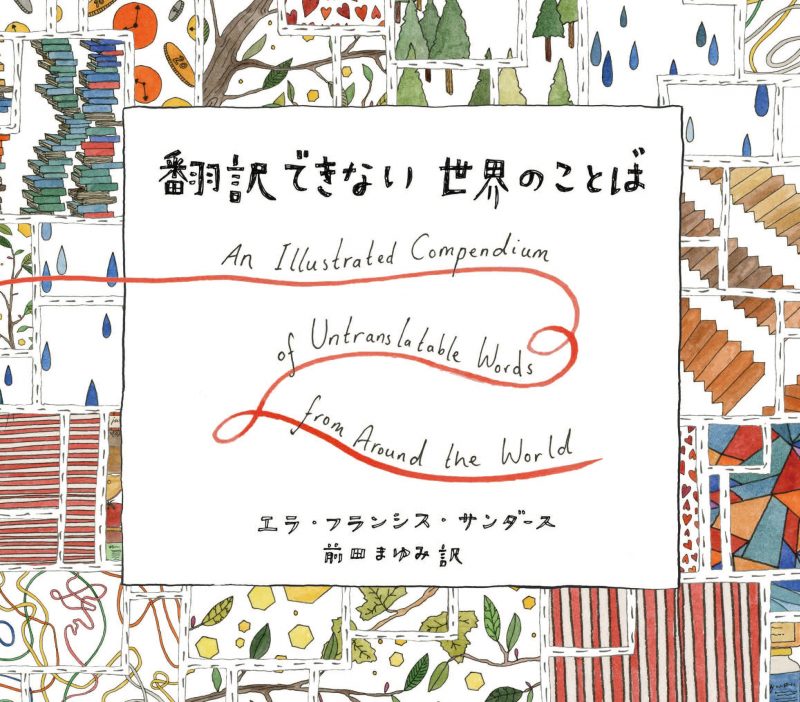 翻訳できない 世界のことば
An Illustrated Compendium
of Untranslatable Words
from Around the World
エラ・フランシス・サンダース
前田まゆみ訳